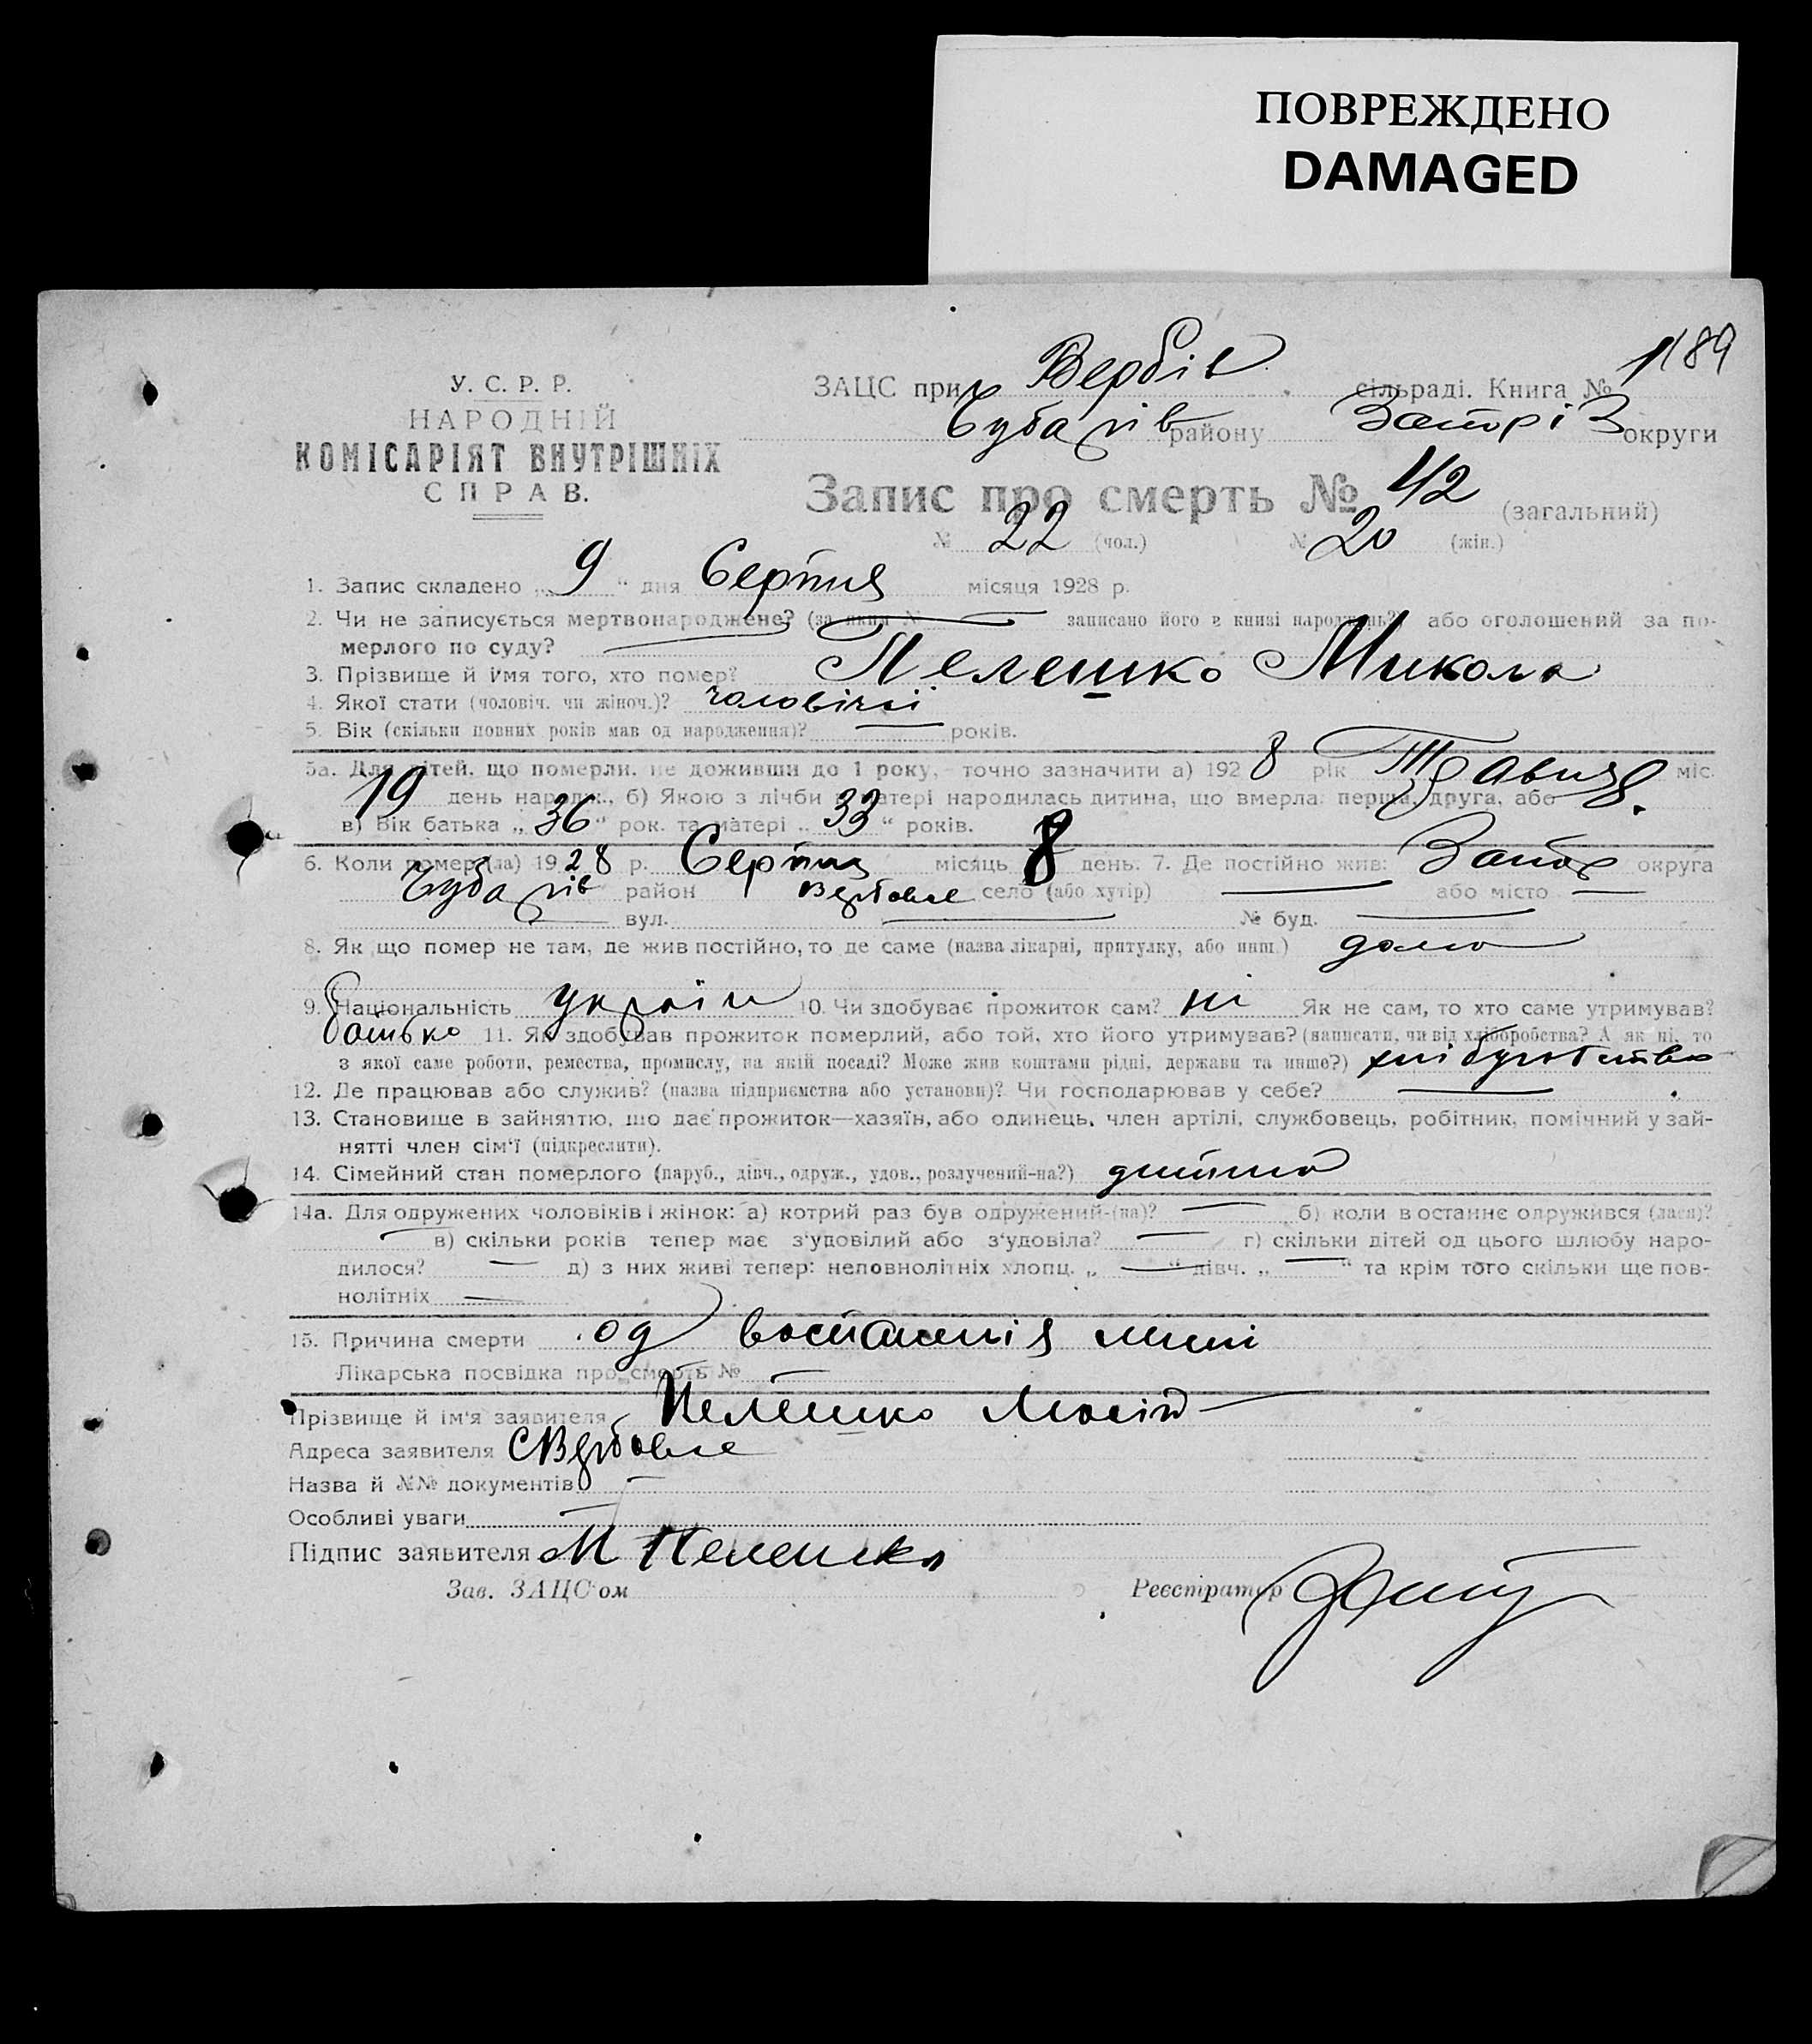 ПОВРЕЖДЕНО
DAMAGED
1189
У. С. Р. Р.
НАРОДНІЙ
КОМІСАРІЯТ ВНУТРІШНІХ
СПРАВ.
ЗАЦС при Вербів сільраді. Книга №
району Запоріз округи
Запис про смерть № 42 (загальний)
№ 22 (чол.) № 20 (жін.)
1. Запис складено „ 9 “ дня Серпня місяця 1928 р.
2. Чи не записується мертвонароджене? (за яким № — записано його в книзі народжень?) або оголошений за по-
мерлого по суду? —
3. Прізвище й ім'я того, хто помер? Пелешко Микола
4. Якої стати (чоловіч. чи жіноч.)? чоловічої
5. Вік (скільки повних років мав од народження)? — років.
5а. Для дітей, що померли, не доживши до 1 року, точно зазначити а) 1928 рік Травня міс.
19 день народж., б) Якою з лічби у матері народилась дитина, що вмерла: перша, друга, або 8.
в) Вік батька „ 36 “ рок. та матері „ 33 “ років.
6. Коли помер (ла) 1928 р. Серпня місяць 8 день. 7. Де постійно жив: Запор округа
район Вербове село (або хутір) — або місто —
— вул. — № буд. —
8. Як що помер не там, де жив постійно, то де саме (назва лікарні, притулку, або инш.) дома
9. Національність україн 10. Чи здобуває прожиток сам? ні Як не сам, то хто саме утримував?
батько 11. Як здобував прожиток померлий, або той, хто його утримував? (написати, чи від хліборобства? А як ні, то
з якої саме роботи, ремества, промислу, на якій посаді? Може жив коштами рідні, держави та инше?)
12. Де працював або служив? (назва підприємства або установи)? Чи господарював у себе? —
13. Становище в зайняттю, що дає прожиток—хазяїн, або одинець, член артілі, службовець, робітник, помічний у зай-
нятті член сім'ї (підкреслити).
14. Сімейний стан померлого (паруб., дівч., одруж., удов., розлучений-на?) дитина
14а. Для одружених чоловіків і жінок: а) котрий раз був одружений-(на)? — б) коли в останнє одружився (лася)?
— в) скільки років тепер має з'удовілий або з'удовіла? — г) скільки дітей од цього шлюбу наро-
дилося? — д) з них живі тепер: неповнолітніх хлопц. „ — “ дівч. „ — “ та крім того скільки ще пов-
нолітніх —
15. Причина смерти од
Лікарська посвідка про смерть № —
Прізвище й ім'я заявителя Пелешко —
Адреса заявителя С Вербове
Назва й №№ документів —
Особливі уваги —
Підпис заявителя М Пелешко
Зав. ЗАЦС'ом Реєстратор